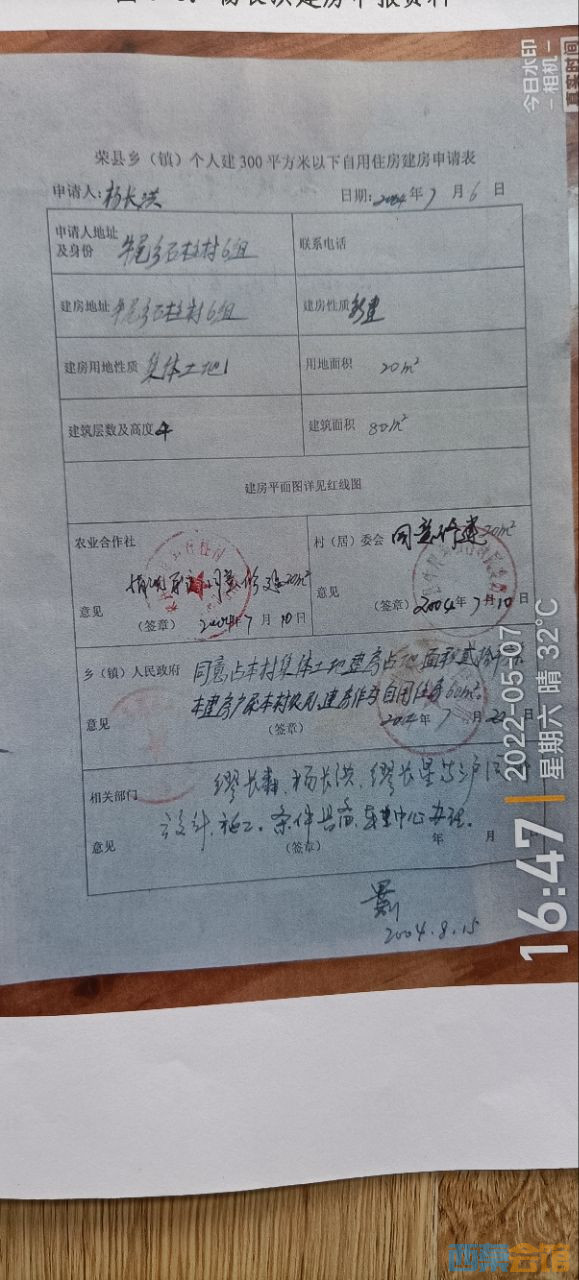 杨长洪建房申报资料
荣县乡（镇）个人建300平方米以下自用住房建房申请表
申请人：杨长洪 日期：2004年7月6日
申请人地址及身份 牛尾乡石柱村6组 联系电话
建房地址 牛尾乡石柱村6组 建房性质 新建
建房用地性质 集体土地 用地面积 20m²
建筑层数及高度 4 建筑面积 80m²
建房平面图详见红线图
农业合作社 村（居）委会 同意修建20m²
情况属实同意修建20m²
意见 （签章） 2004年7月10日 意见 （签章） 2004年7月10日
乡（镇）人民政府 同意占本村集体土地建房占地面积贰拾
本建房户系本村农户，建房作为自用住房60m²。
意见 （签章） 2004年7月22日
相关部门 缪长森、杨长洪、缪长星等三户
设计、施工。条件具备，中心办理。
意见 （签章） 年 月
2004.8.15
今日水印
相机
真实时间
16:47
2022-05-07
星期六 晴 32℃